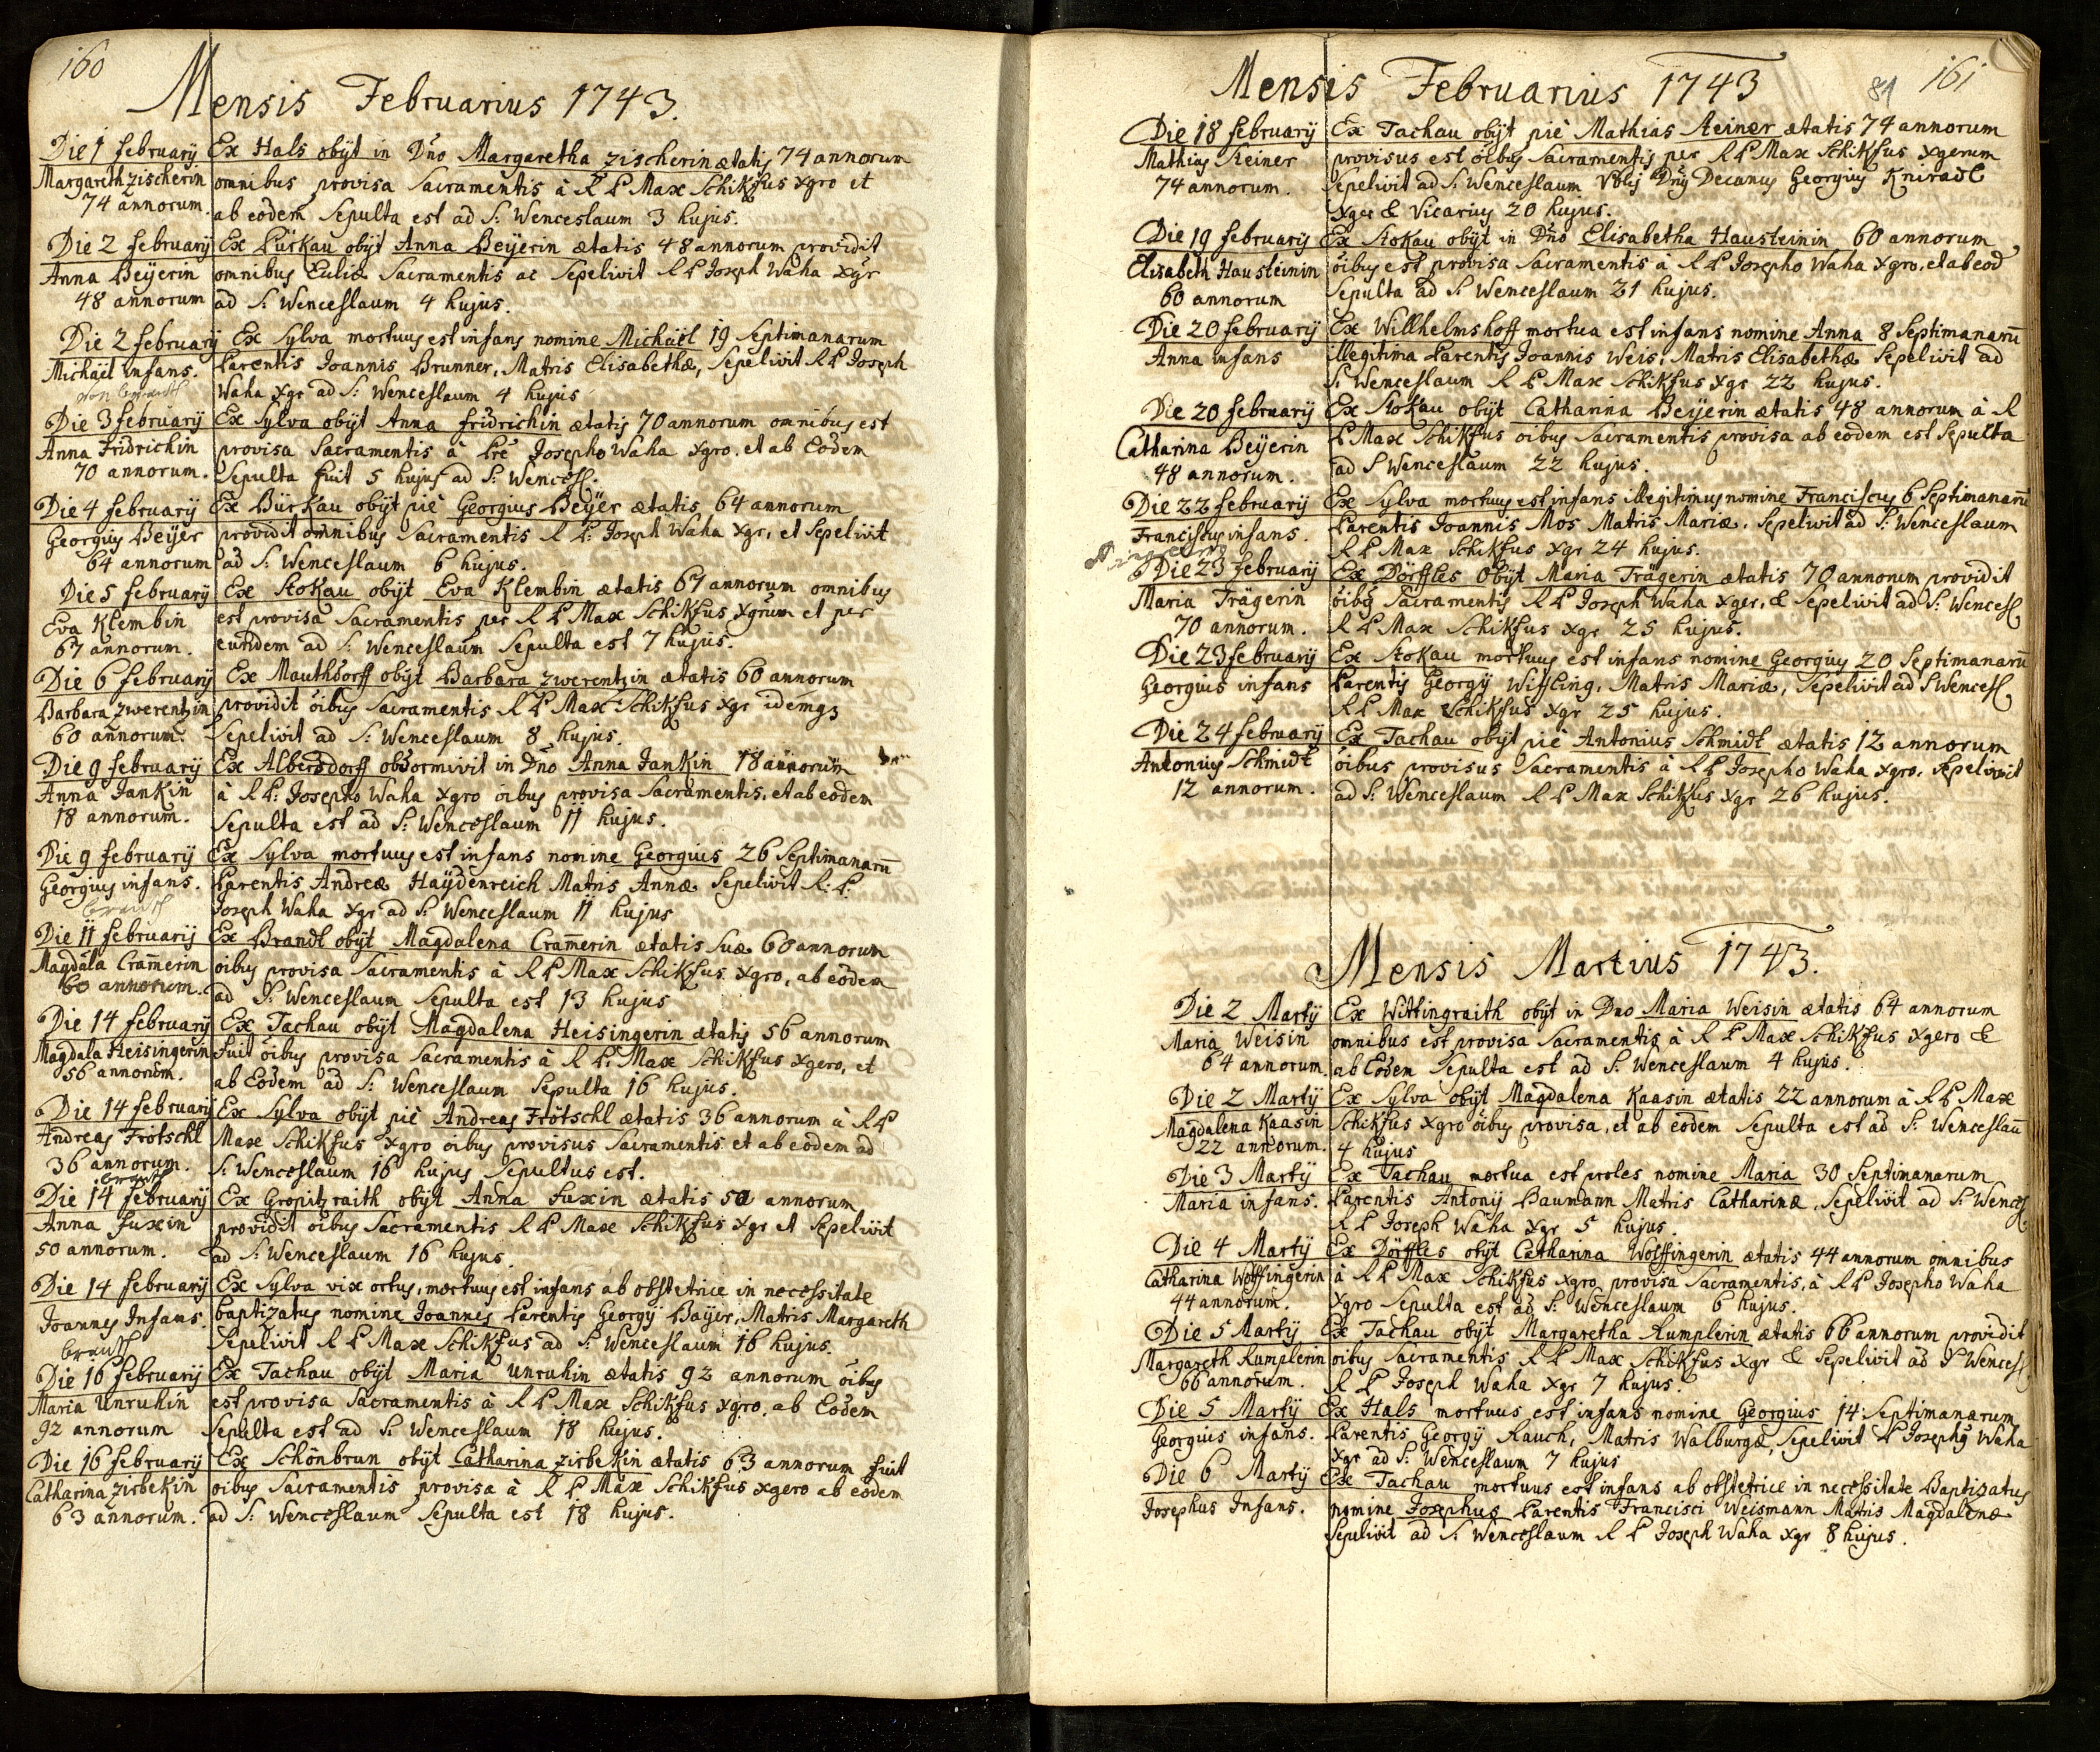 160
Mensis Februarius 1743.
Die 1 february
Margareth Zischerin
74 annorum.
Ex Hals obijt in Dno Margaretha Zischerin ætatis 74 annorum
omnibus provisa Sacramentis à R P Max Schikfus Xgro et
ab eodem Sepulta est ad S: Wenceslaum 3 hujus.
Die 2 february
Anna Beÿerin
48 annorum
Ex Pürkau obijt Anna Beÿerin ætatis 48 annorum providit
omnibus Sacramentis ac Sepelivit R P Joseph Waha Xgr
ad S: Wenceslaum 4 hujus.
Die 2 february
Michäel infans.
Ex Sylva mortuus est infans nomine Michäel 19 Septimanarum
Parentis Joannis Brunner, Matris Elisabethæ, Sepelivit R P Joseph
Waha Xgr ad S: Wenceslaum 4 hujus
Die 3 february
Anna Fridrichin
70 annorum.
Ex Sylva obijt Anna fridrichin ætatis 70 annorum omnibus est
provisa Sacramentis à Pre Josepho Waha Xgro. et ab Eodem
Sepulta fuit 5 hujus ad S: Wencesl.
Die 4 february
Georgius Beÿer
64 annorum
Ex Bürkau obijt piè Georgius Beÿer ætatis 64 annorum
providit omnibus Sacramentis R P: Joseph Waha Xgr, et Sepelivit
ad S: Wenceslaum 6 hujus.
Die 5 february
Eva Klembin
67 annorum.
Ex Stokau obijt Eva Klembin ætatis 67 annorum omnibus
est provisa Sacramentis per R P Max Schikfus Xgrum et per
eundem ad S: Wenceslaum Sepulta est 7 hujus.
Die 6 february
Barbara Zwerentzin
60 annorum.
Ex Mauthdorff obijt Barbara Zwerentzin ætatis 60 annorum
providit oibus Sacramentis R P Max Schikfus Xgr idemqz
Sepelivit ad S: Wenceslaum 8 hujus.
Die 9 february
Anna Jankin
18 annorum.
Ex Albersdorff obdormivit in Dno Anna Jankin 18 annorum
à R P: Josepho Waha Xgro oibus provisa Sacramentis, et ab eodem
Sepulta est ad S: Wenceslaum 11 hujus.
Die 9 february
Georgius infans.
Ex Sylva mortuus est infans nomine Georgius 26 Septimanarū
Parentis Andreæ Haÿdenreich Matris Annæ Sepelivit R: P:
Joseph Waha Xgr ad S: Wenceslaum 11 hujus
Die 11 februarij
Magdala Cramerin
60 annorum.
Ex Brandt obijt Magdalena Cramerin ætatis Suæ 60 annorum
oibus provisa Sacramentis à R P Max Schikfus Xgro, ab eodem
ad S: Wenceslaum Sepulta est 13 hujus
Die 14 february
Magdala Heisingerin
56 annorum.
Ex Tachau obijt Magdalena Heisingerin ætatis 56 annorum
fuit oibus provisa Sacramentis à R P: Max Schikfus Xgero, et
ab Eodem ad S: Wenceslaum Sepulta 16 hujus.
Die 14 february
Andreas Frötschl
36 annorum.
Ex Sylva obijt piè Andreas Frötschl ætatis 36 annorum à R P
Max Schikfus Xgro oibus provisus Sacramentis et ab eodem ad
S: Wenceslaum 16 hujus Sepultus est.
Die 14 february
Anna fuxin
50 annorum.
Ex Gropitzraith obijt Anna fuxin ætatis 50 annorum
providit oibus Sacramentis R P Max Schikfus Xgr et Sepelivit
ad S: Wenceslaum 16 hujus.
Die 14 february
Joannes Infans.
Ex Sylva vix ortus, mortuus est infans ab obstetrice in necessitate
baptizatus nomine Joannes Parentis Georgÿ Baÿer, Matris Margareth
Sepelivit R P Max Schikfus ad S: Wenceslaum 16 hujus.
Die 16 february
Maria Unruhin
92 annorum
Ex Tachau obijt Maria Unruhin ætatis 92 annorum oibus
est provisa Sacramentis à R P Max Schikfus Xgro, ab Eodem
Sepulta est ad S: Wenceslaum 18 hujus.
Die 16 february
Catharina Zirbekin
63 annorum.
Ex Schönbrun obijt Catharina Zirbekin ætatis 63 annorum fuit
oibus Sacramentis provisa à R P Max Schikfus Xgero ab eodem
ad S: Wenceslaum Sepulta est 18 hujus.
81
161
Mensis Februarius 1743
Die 18 februarij
Mathias Steiner
74 annorum.
Ex Tachau obijt piè Mathias Steiner ætatis 74 annorum
provisus est oibus Sacramentis per R P Max Schikfus Xgerum
Sepelivit ad S: Wenceslaum Dnus Decanus Georgius Kniradl
Xger & Vicarius 20 hujus.
Die 19 februarij
Elisabeth Hausteinin
60 annorum
Ex Stokau obijt in Dno Elisabetha Hausteinin 60 annorum
oibus est provisa Sacramentis à R P Josepho Waha Xgro, et ab eod
Sepulta ad S: Wenceslaum 21 hujus.
Die 20 februarij
Anna infans
Ex Willhelmshoff mortua est infans nomine Anna 8 Septimanarū
illegitima Parentis Joannis Weis, Matris Elisabethæ Sepelivit ad
S: Wenceslaum R P Max Schikfus Xgr 22 hujus.
Die 20 februarij
Catharina Beÿerin
48 annorum.
Ex Stokau obijt Catharina Beijerin ætatis 48 annorum à R
P Max Schikfus oibus Sacramentis provisa ab eodem est Sepulta
ad S Wenceslaum 22 hujus.
Die 22 februarij
Franciscus infans.
Ex Sylva mortuus est infans illegitimus nomine Franciscus 6 Septimanarū
Parentis Joannis Mos Matris Mariæ. Sepelivit ad S: Wenceslaum
R P Max Schikfus Xgr 24 hujus.
Die 23 februarij
Maria Trägerin
70 annorum.
Ex Dörffles Obijt Maria Trägerin ætatis 70 annorum providit
oibus Sacramentis R P Joseph Waha Xger, & Sepelivit ad S: Wencesl
R P Max Schikfus Xgr 25 hujus.
Die 23 februarij
Georgius infans
Ex Stokau mortuus est infans nomine Georgius 20 Septimanarū
Parentis Georgÿ Wissling, Matris Mariæ, Sepelivit ad S Wencesl
R P Max Schikfus Xgr 25 hujus.
Die 24 februarij
Antonius Schmidt
12 annorum.
Ex Tachau obijt piè Antonius Schmidt ætatis 12 annorum
oibus provisus Sacramentis à R P Josepho Waha Xgro. Sepelivit
ad S: Wenceslaum R P Max Schikfus Xgr 26 hujus.
Mensis Martius 1743.
Die 2 Martÿ
Maria Weisin
64 annorum.
Ex Wittingraith obijt in Dno Maria Weisin ætatis 64 annorum
omnibus est provisa Sacramentis à R P Max Schikfus Xgero &
ab Eodem Sepulta est ad S: Wenceslaum 4 hujus.
Die 2 Martÿ
Magdalena Kaasin
22 annorum.
Ex Sylva obijt Magdalena Kaasin ætatis 22 annorum à R P Max
Schikfus Xgro oibus provisa, et ab eodem Sepulta est ad S: Wenceslaū
4 hujus
Die 3 Martÿ
Maria infans.
Ex Tachau mortua est proles nomine Maria 30 Septimanarum
Parentis Antonij Baumann Matris Catharinæ, Sepelivit ad S: Wencesl
R P Joseph Waha Xgr 5 hujus.
Die 4 Martÿ
Catharina Wolffingerin
44 annorum.
Ex Dörffles obijt Catharina Wolffingerin ætatis 44 annorum omnibus
à R P Max Schikfus Xgro provisa Sacramentis, à R P Josepho Waha
Xgro Sepulta est ad S: Wenceslaum 6 hujus.
Die 5 Martÿ
Margareth Rumplerin
66 annorum.
Ex Tachau obijt Margaretha Rumplerin ætatis 66 annorum providit
oibus Sacramentis R P Max Schikfus Xgr & Sepelivit ad S Wencesl
R P Joseph Waha Xgr 7 hujus.
Die 5 Martÿ
Georgius infans.
Ex Hals mortuus est infans nomine Georgius 14 Septimanarum
Parentis Georgÿ Rauch, Matris Walburgæ, Sepelivit P Josephus Waha
Xgr ad S: Wenceslaum 7 hujus
Die 6 Martÿ
Josephus Infans.
Ex Tachau mortuus est infans ab obstetrice in necessitate Baptisatus
nomine Josephus Parentis Francisci Weismann Matris Magdalenæ
Sepelivit ad S: Wenceslaum R P Joseph Waha Xgr 8 hujus.